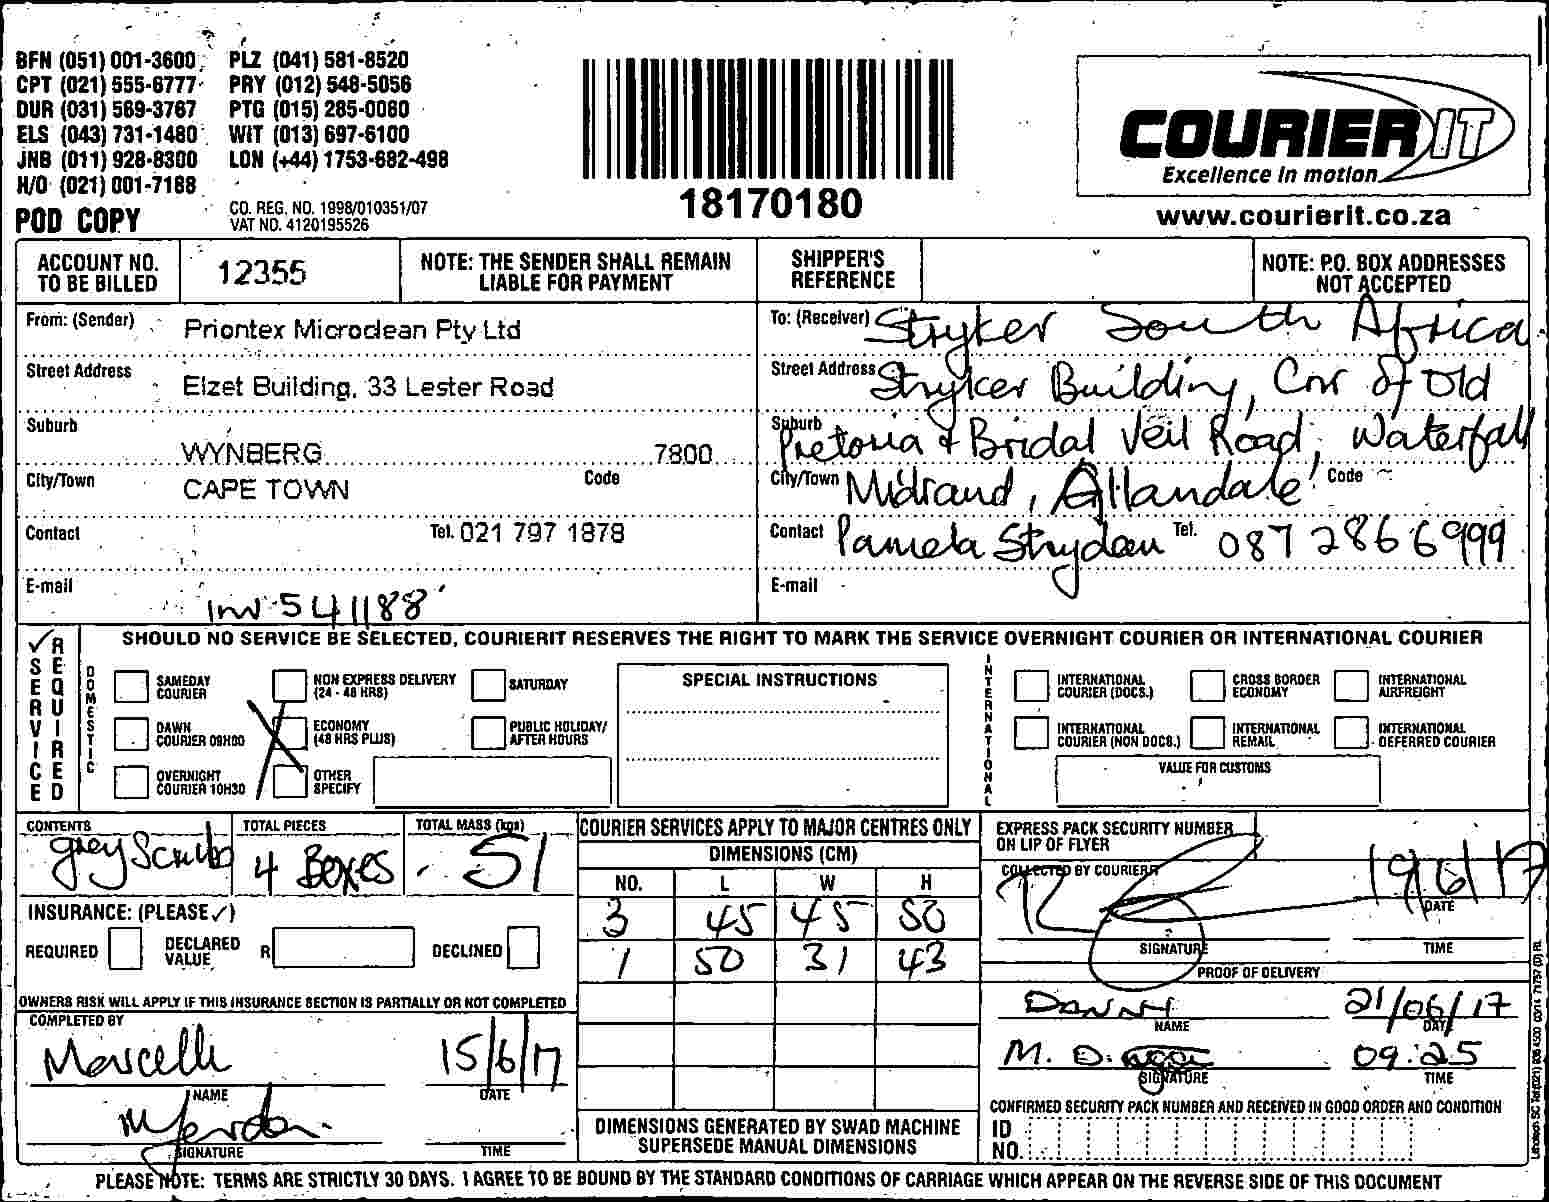 BFN (051) 001-3600 PLZ (041) 581-8520
CPT (021) 555-6777 PRY (012) 548-5056
DUR (031) 569-3767 PTG (015) 285-0060
ELS (043) 731-1480 WIT (013) 697-6100
JNB (011) 928-8300 LON (+44) 1753-682-498
H/O (021) 001-7188
POD COPY
CO. REG. NO. 1998/010351/07
VAT NO. 4120195526
18170180
COURIER IT
Excellence in motion
www.courierit.co.za
ACCOUNT NO. TO BE BILLED
12355
NOTE: THE SENDER SHALL REMAIN LIABLE FOR PAYMENT
SHIPPER'S REFERENCE
NOTE: P.O. BOX ADDRESSES NOT ACCEPTED
From: (Sender) Priontex Microclean Pty Ltd
Street Address Elzet Building, 33 Lester Road
Suburb WYNBERG 7800
City/Town CAPE TOWN Code
Contact Tel. 021 797 1878
E-mail
Inv 541188
To: (Receiver) Stryker South Africa
Street Address Stryker Building, Cnr of Old
Suburb Pretoria + Bridal Veil Road, Waterfall
City/Town Midrand, Allandale Code
Contact Pamela Strydom Tel. 087 286 6999
E-mail
✓ SERVICE REQUIRED
SHOULD NO SERVICE BE SELECTED, COURIERIT RESERVES THE RIGHT TO MARK THE SERVICE OVERNIGHT COURIER OR INTERNATIONAL COURIER
DOMESTIC
SAMEDAY COURIER
NON EXPRESS DELIVERY (24 - 48 HRS)
SATURDAY
DAWN COURIER 09H00
ECONOMY (48 HRS PLUS)
PUBLIC HOLIDAY/ AFTER HOURS
OVERNIGHT COURIER 10H30
OTHER SPECIFY
SPECIAL INSTRUCTIONS
INTERNATIONAL
INTERNATIONAL COURIER (DOCS.)
CROSS BORDER ECONOMY
INTERNATIONAL AIRFREIGHT
INTERNATIONAL COURIER (NON DOCS.)
INTERNATIONAL REMAIL
INTERNATIONAL DEFERRED COURIER
VALUE FOR CUSTOMS
CONTENTS grey Scrub
TOTAL PIECES 4 Boxes
TOTAL MASS (kgs) 51
INSURANCE: (PLEASE ✓)
REQUIRED DECLARED VALUE R DECLINED
OWNERS RISK WILL APPLY IF THIS INSURANCE SECTION IS PARTIALLY OR NOT COMPLETED
COMPLETED BY
Marcelle 15/6/17
NAME DATE
SIGNATURE TIME
COURIER SERVICES APPLY TO MAJOR CENTRES ONLY
DIMENSIONS (CM)
NO. L W H
3 45 45 50
1 50 31 43
DIMENSIONS GENERATED BY SWAD MACHINE SUPERSEDE MANUAL DIMENSIONS
EXPRESS PACK SECURITY NUMBER ON LIP OF FLYER
COLLECTED BY COURIER
19/6/17
DATE
SIGNATURE TIME
PROOF OF DELIVERY
21/06/17
NAME DATE
09:25
SIGNATURE TIME
CONFIRMED SECURITY PACK NUMBER AND RECEIVED IN GOOD ORDER AND CONDITION
ID NO.
PLEASE NOTE: TERMS ARE STRICTLY 30 DAYS. I AGREE TO BE BOUND BY THE STANDARD CONDITIONS OF CARRIAGE WHICH APPEAR ON THE REVERSE SIDE OF THIS DOCUMENT